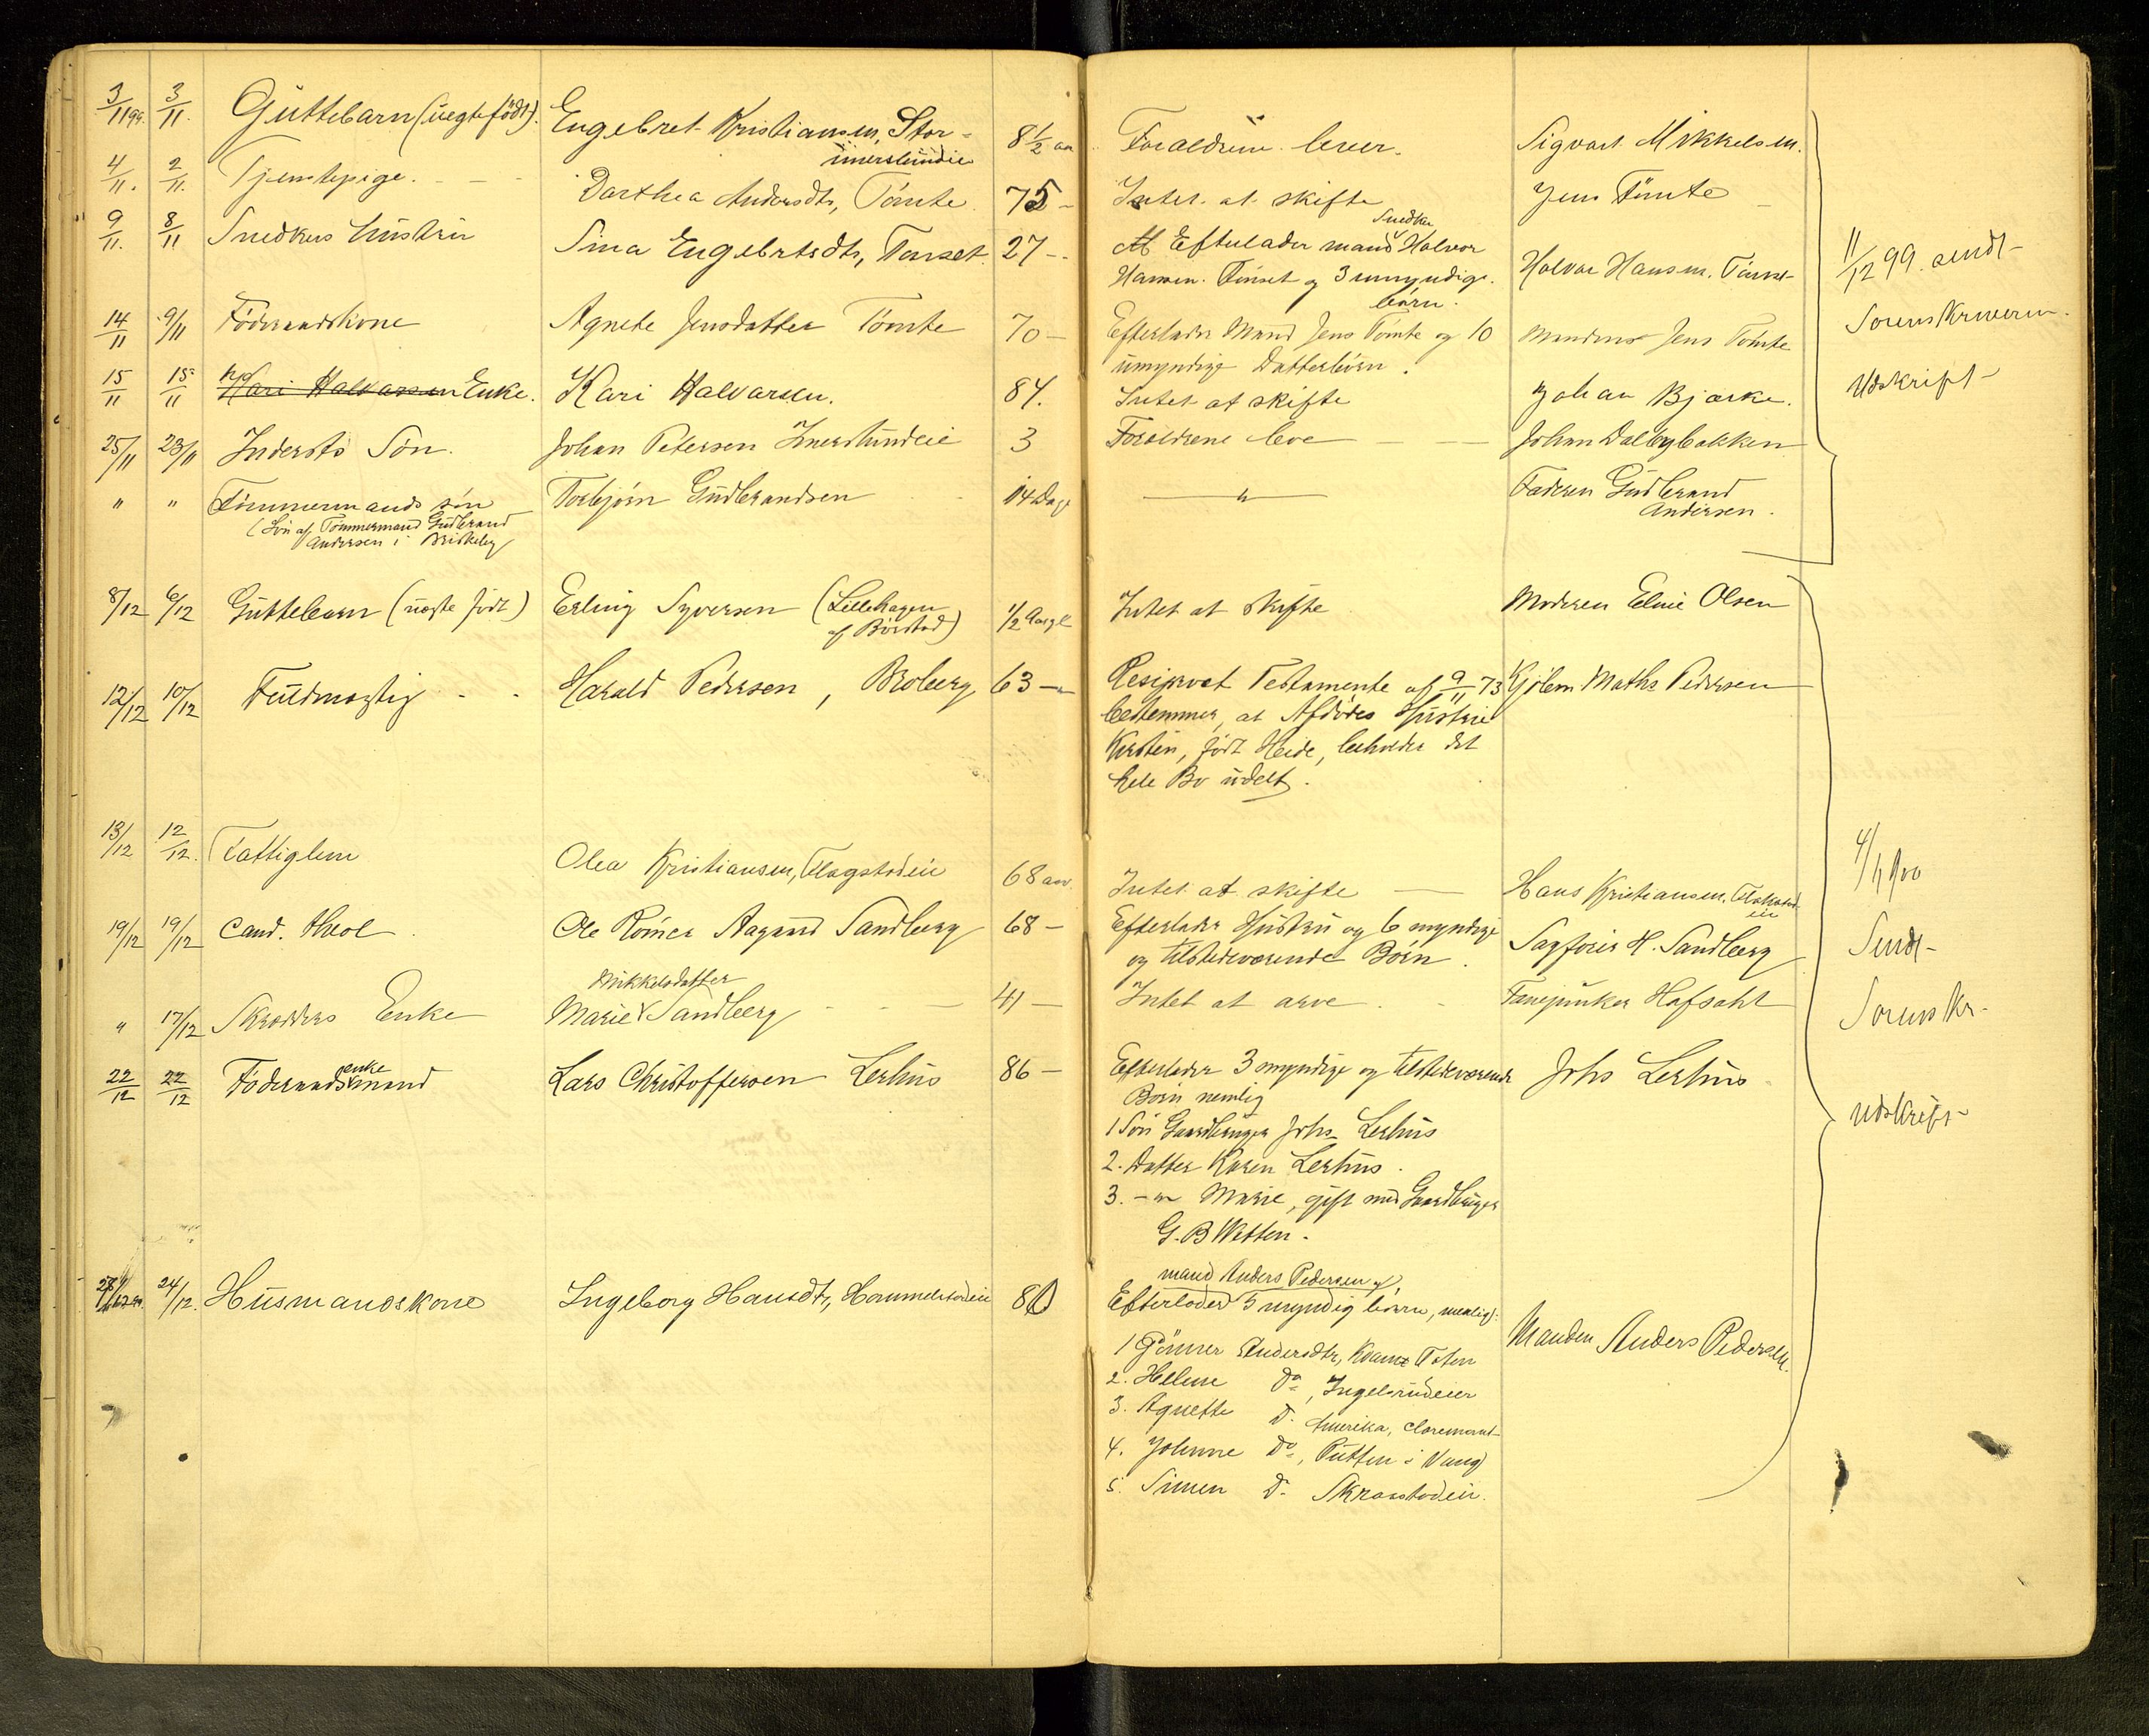 3/11 99. 3/11. Guttebarn (uegtefödt). Engebret Kristiansen, Stor- 8 1/2 aar Foraldrene lever. Sigvart Mikkelsen.
imerslundeie
4/11. 2/11. Tjenstepige. Darthea Andersdtr, Tömte 75 - Intet at skifte Jens Tömte
9/11. 8/11 Snedkers hustru Sina Engebretsdtr, Tørset. 27 - Efterlader mand Snedker Halvor
Hansen. Tørset og 3 umyndige. Halvor Hansen. Tørset
børn.
14/11 9/11 Föderaadskone Agnete Jensdatter Tömte 70 - Efterlader Mand Jens Tömte og 10 Manden Jens Tömte
umyndige Datterbörn.
15/11 15/11 Kari Halvarsen Enke. Kari Halvarsen. 84. Intet at skifte Johan Bjørke.
25/11 23/11 Indersts Søn. Johan Petersen Imerslundeie 3 Forældrene leve Johan Dalbybakken
" " Tømmermands søn Torbjørn Gudbrandsen 14 Dage " Faderen Gudbrand
Andersen.
(Søn af Tømmermand Gudbrand
Andersen i Briskeby
11/12 99. sendt
Sorenskriveren
Udskrift
8/12 6/12 Guttebarn (uægte født) Erling Syversen (Lillehagen
af Börstad) 1/2 Aar gl Intet at skifte Moderen Eline Olsen
12/12 10/12 Fuldmægtig Harald Pedersen, Broberg 63 - Resiprost Testamente af 9/11 73 Gjølem Maths Pedersen
bestemmer, at Afdödes Hustru
Kirsten, født Heide, beholder det
hele Bo udelt.
13/12 12/12. Fattiglem Olea Kristiansen, Flagstadeie 68 aar Intet at skifte Hans Kristiansen, Flakstad-
eie
19/12 19/12 Cand. theol. Ole Römer Aagaard Sandberg 68 - Efterlader Hustru og 6 myndige Sagfører H. Sandberg
og tilstedeværende Børn.
" 17/12 Skrædders Enke Marie Mikkelsdatter Sandberg 41 - Intet at arve Fanejunker Hofsaht
22/12 22/12 Föderaadsenkemand Lars Christoffersen Lerhus 86 - Efterlader 3 myndige og tilstedeværende Johs Lerhus
Börn nemlig
1 Søn Gaardbruger Johs Lerhus
2. Datter Karen Lerhus.
3. - " - Marie, gift med Gaardbruger
G. B Wetten.
4/1 900
Sendt
Sorenskr.
udskrift
24/12. Husmandskone Ingeborg Hansdtr, Hommelstadeie 80 mand Anders Pedersen og
Efterlader 5 myndig børn, nemlig:
Manden Anders Pedersen.
1 Gönner Andersdtr, Kvam Toten
2. Helene Do, Ingelsrudeier
3. Agnette D. Amerika, Claremont
4. Johanne Do, Putten i Vang
5. Simen D. Skraastadeie.